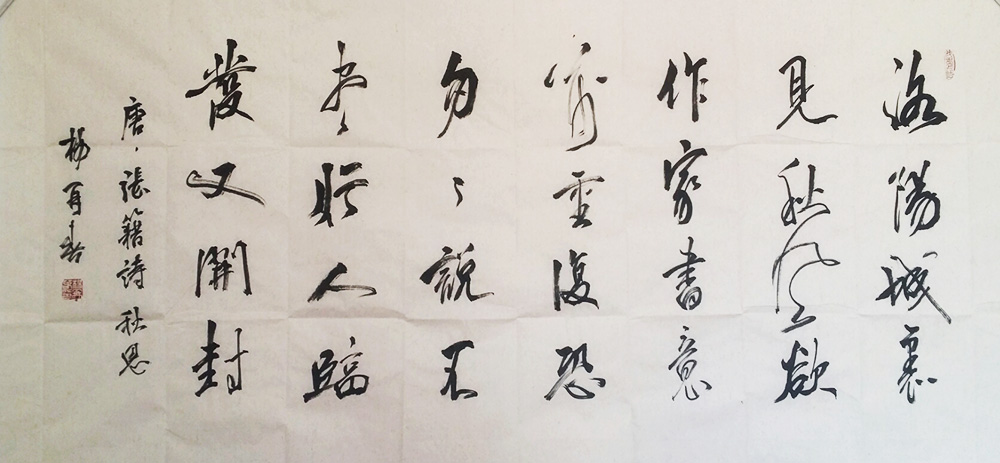 洛陽城裏
見秋風欲
作家書意
萬重復恐
匆〻說不
盡行人臨
發又開封
唐、張籍詩 秋思
楊再春